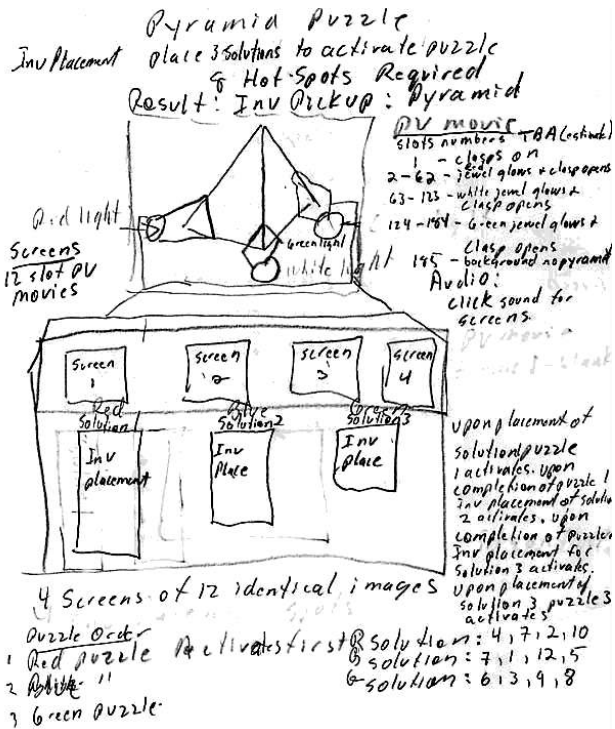 Pyramid Puzzle
Inv Placement place 3 solutions to activate puzzle
8 Hot-Spots Required
Result: Inv Pickup: Pyramid
PV movie
slots numbers - TBA (estimate)
1 - clasps on
2-62 - Red jewel glows & clasp opens
63-123 - white jewel glows & clasp opens
124-184 - Green jewel glows & clasp opens
185 - background no pyramid
Audio:
click sound for
screens
PV movie
Red light
Green light
white light
Screens
12 slot PV
movies
Screen 1
Screen 2
Screen 3
Screen 4
Red Solution 1
Blue Solution 2
Green Solution 3
Inv placement
Inv Place
Inv Place
upon placement of
solution 1 puzzle
1 activates. upon
completion of puzzle 1
Inv placement of solution
2 activates. upon
completion of puzzle
Inv placement for
solution 3 activates.
upon placement of
solution 3 puzzle 3
activates
4 Screens of 12 identical images
Puzzle Order
1 Red puzzle Activates first
2 "
3 Green puzzle
R solution: 4, 7, 2, 10
B solution: 7, 1, 12, 5
G solution: 6, 3, 9, 8